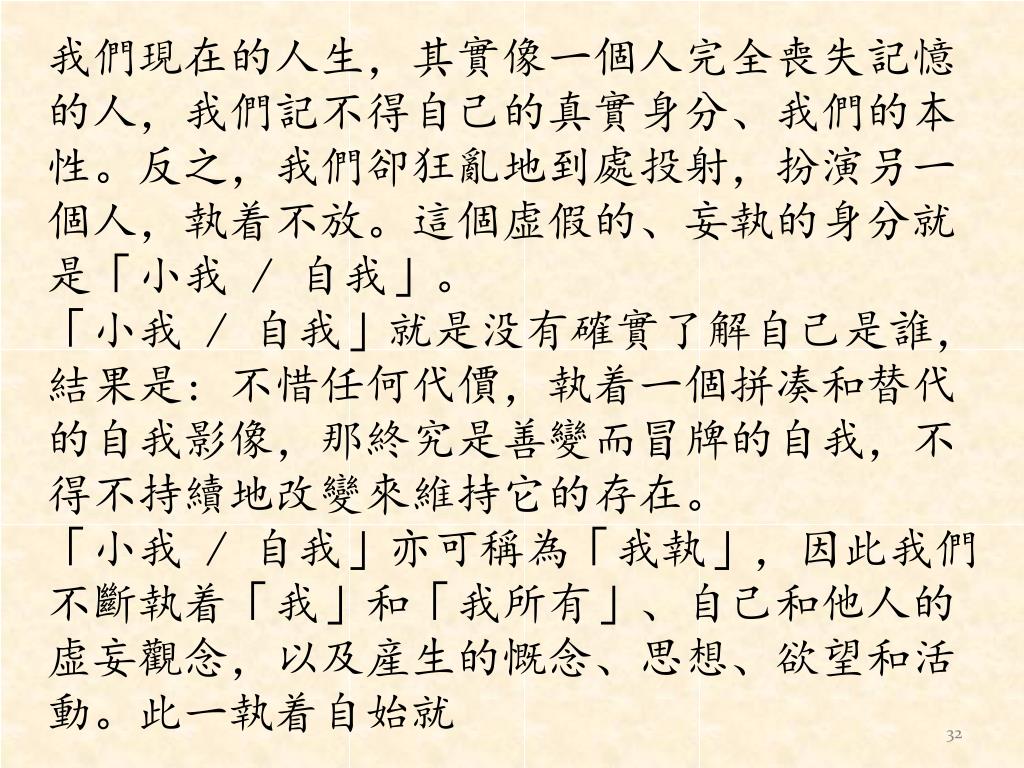 我們現在的人生，其實像一個人完全喪失記憶
的人，我們記不得自己的真實身分、我們的本
性。反之，我們卻狂亂地到處投射，扮演另一
個人，執着不放。這個虛假的、妄執的身分就
是「小我 / 自我」。
「小我 / 自我」就是没有確實了解自己是誰，
結果是：不惜任何代價，執着一個拼凑和替代
的自我影像，那終究是善變而冒牌的自我，不
得不持續地改變來維持它的存在。
「小我 / 自我」亦可稱為「我執」，因此我們
不斷執着「我」和「我所有」、自己和他人的
虛妄觀念，以及産生的慨念、思想、欲望和活
動。此一執着自始就
32